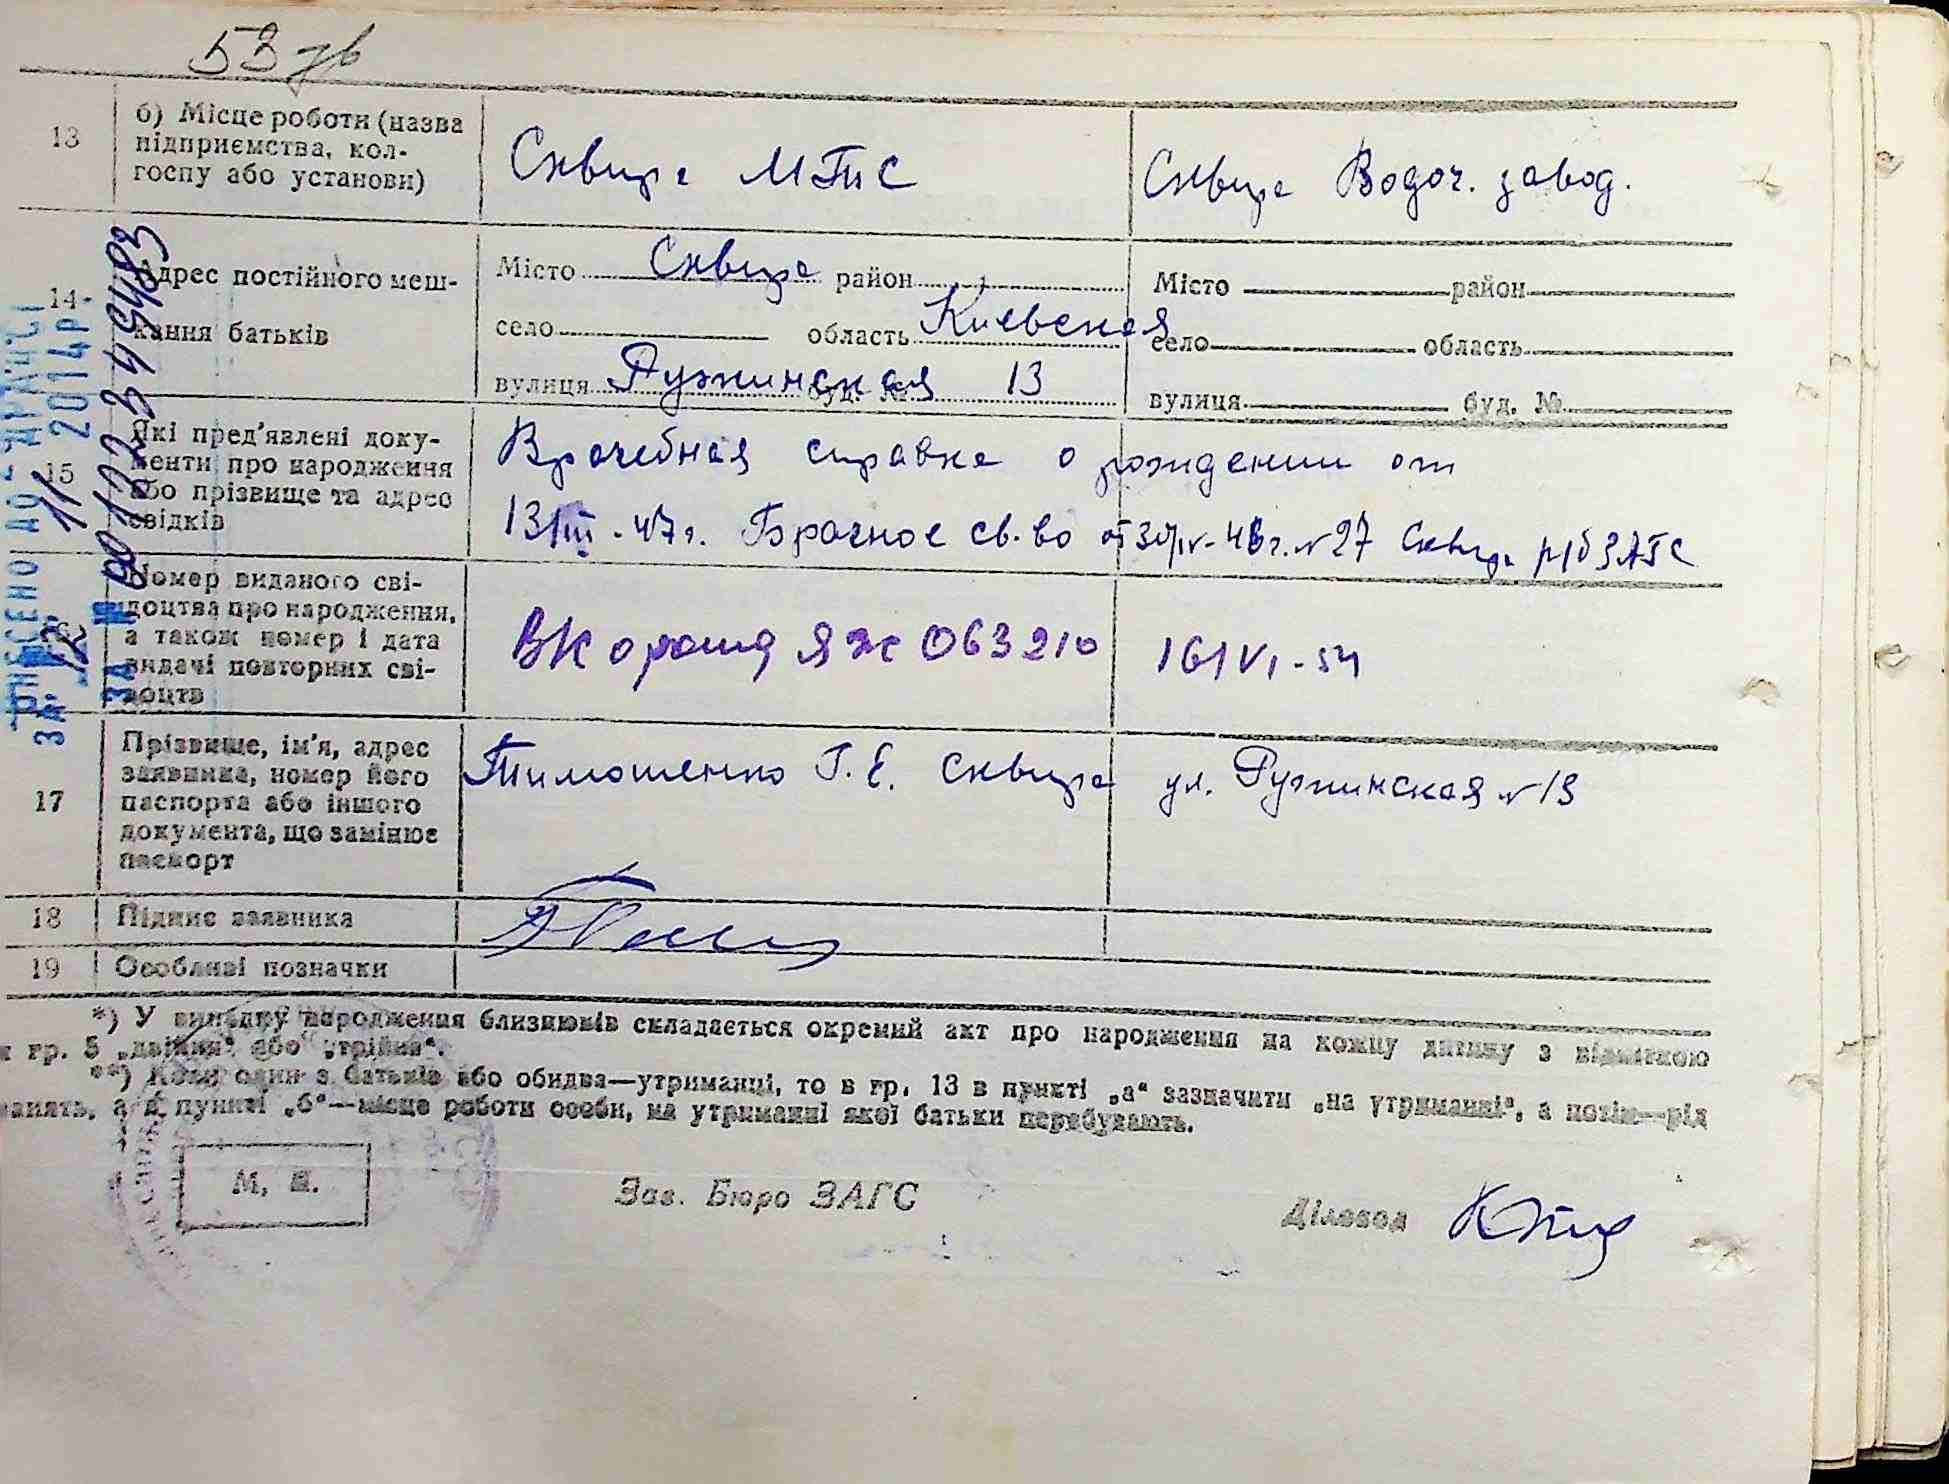 53
13
б) Місце роботи (назва
підприємства, кол-
госпу або установи)
Сквира МТС
Сквира Водоч. завод.
14
Адрес постійного меш-
кання батьків
Місто Сквира район
село область Киевская
вулиця Ружинская буд. № 13
Місто район
село область
вулиця буд. №
15
Які пред'явлені доку-
менти про народження
або прізвище та адрес
свідків
Врачебная справка о рождении от
13/III-47г. Брачное св-во от 30/IV-46г. №27 Сквира р/б ЗАГС
Номер виданого сві-
доцтва про народження,
а також номер і дата
видачі повторних сві-
доцтв
ЯЖ 063210
16/VI-54
17
Прізвище, ім'я, адрес
заявника, номер його
паспорта або іншого
документа, що замінює
паспорт
Тимошенко Г. Е. Сквира ул. Ружинская №13
18
Підпис заявника
19
Особливі позначки
*) У випадку народження близнюків складається окремий акт про народження на кожну дитину з відміткою
гр. 5 „двійня“ або „трійня“.
**) Коли один з батьків або обидва—утриманці, то в гр. 13 в пункті „а“ зазначити „на утриманні“, а потім—рід
занять, а в пункті „б“—місце роботи особи, на утриманні якої батьки перебувають.
М. П.
Зав. Бюро ЗАГС
Діловод
ВНЕСЕНО ДО ДРАЦСГ
12 11 2014р
ЗА № 00122349483